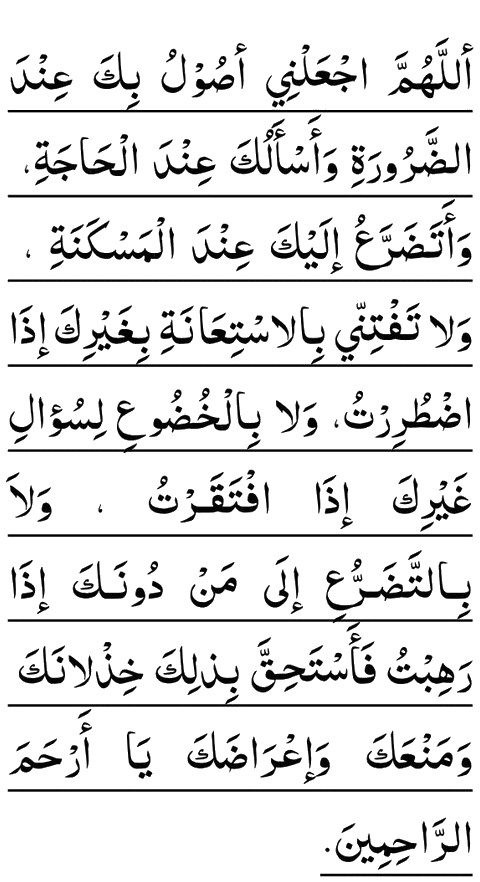 أللَّهُمَّ اجْعَلْنِي أصُوْلُ بِكَ عِنْدَ
الضَّرُورَةِ وَأَسْأَلُكَ عِنْدَ الْحَاجَةِ،
وَأَتَضَرَّعُ إلَيْكَ عِنْدَ الْمَسْكَنَةِ ،
وَلا تَفْتِنّي بِالاسْتِعَانَةِ بِغَيْرِكَ إذَا
اضْطُرِرْتُ، وَلا بِالْخُضُوعِ لِسُؤالِ
غَيْرِكَ إذَا افْتَقَـرْتُ ، وَلاَ
بِـالتَّضَـرُّعِ إلَى مَنْ دُونَـكَ إذَا
رَهِبْتُ فَأَسْتَحِـقَّ بِـذلِكَ خِذْلانَكَ
وَمَنْعَكَ وَإعْرَاضَكَ يَا أَرْحَمَ
الرَّاحِمِينَ.